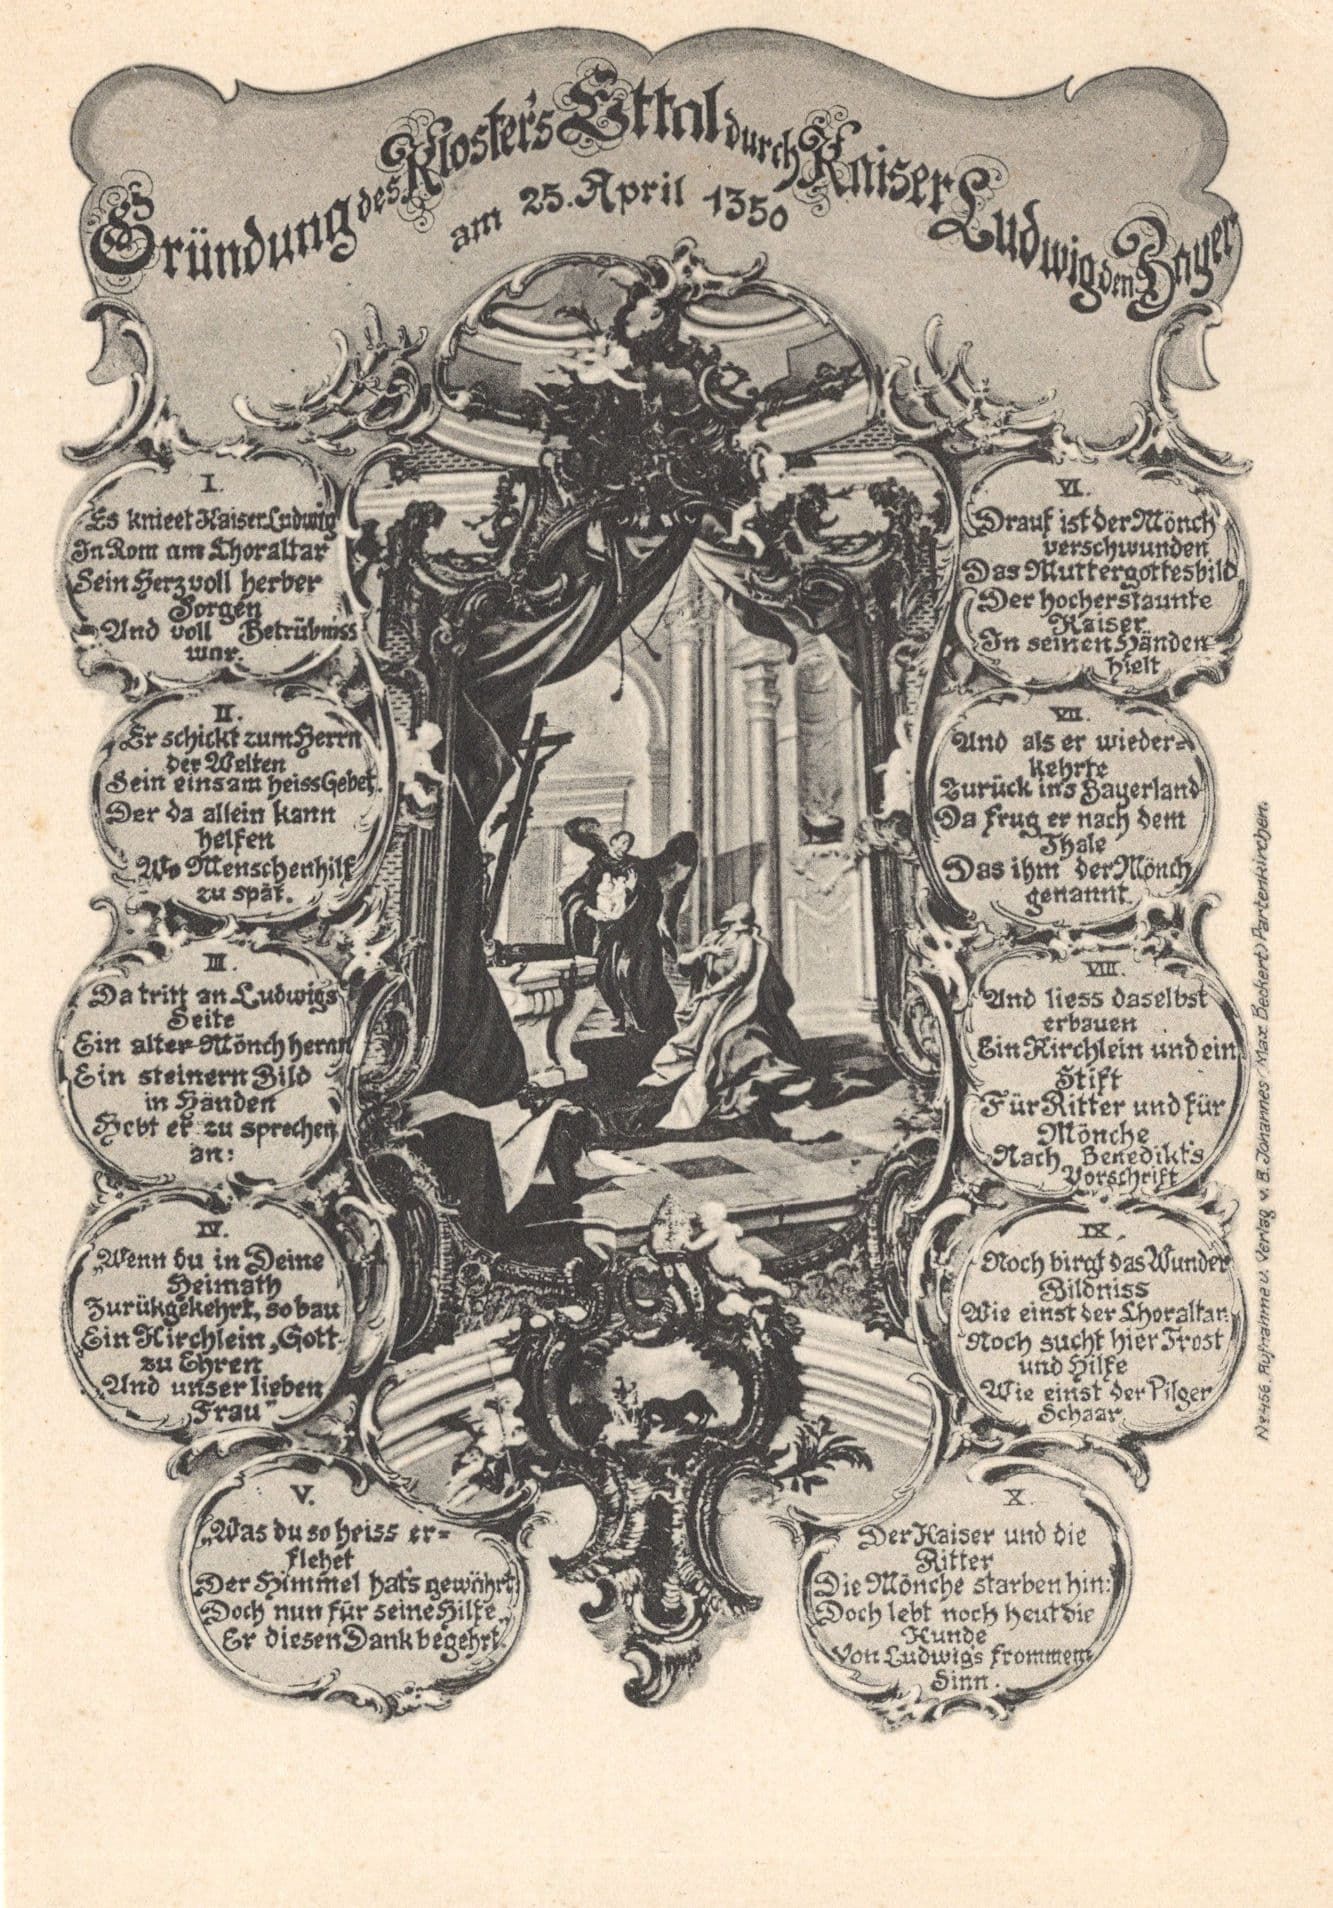 Gründung des Kloster's Ettal durch Kaiser Ludwig den Bayer
am 25. April 1350
I.
Es knieet Kaiser Ludwig
In Rom am Choraltar
Sein Herz voll herber
Sorgen
Und voll Betrübniss
war.
II.
Er schickt zum Herrn
der Welten
Sein einsam heiss Gebet.
Der da allein kann
helfen
Wo Menschenhilf
zu spät.
III.
Da tritt an Ludwig's
Seite
Ein alter Mönch heran
Ein steinern Bild
in Händen
Hebt er zu sprechen
an:
IV.
„Wenn du in Deine
Heimath
Zurükgekehrt, so bau
Ein Kirchlein, Gott
zu Ehren
Und unser lieben
Frau"
V.
„Was du so heiss er=
flehet
Der Himmel hat's gewährt
Doch nun für seine Hilfe
Er diesen Dank begehrt."
VI.
Drauf ist der Mönch
verschwunden
Das Muttergottesbild
Der hocherstaunte
Kaiser
In seinen Händen
hielt
VII.
Und als er wieder=
kehrte
Zurück in's Bayerland
Da frug er nach dem
Thale
Das ihm der Mönch
genannt.
VIII.
Und liess daselbst
erbauen
Ein Kirchlein und ein
Stift
Für Ritter und für
Mönche
Nach Benedikt's
Vorschrift
IX.
Noch birgt das Wunder
Bildniss
Wie einst der Choraltar:
Noch sucht hier Trost
und Hilfe
Wie einst der Pilger
Schaar
X.
Der Kaiser und die
Ritter
Die Mönche starben hin:
Doch lebt noch heut die
Kunde
Von Ludwig's frommem
Sinn.
No 456. Aufnahme u. Verlag v. B. Johannes (Max Beckert) Partenkirchen.